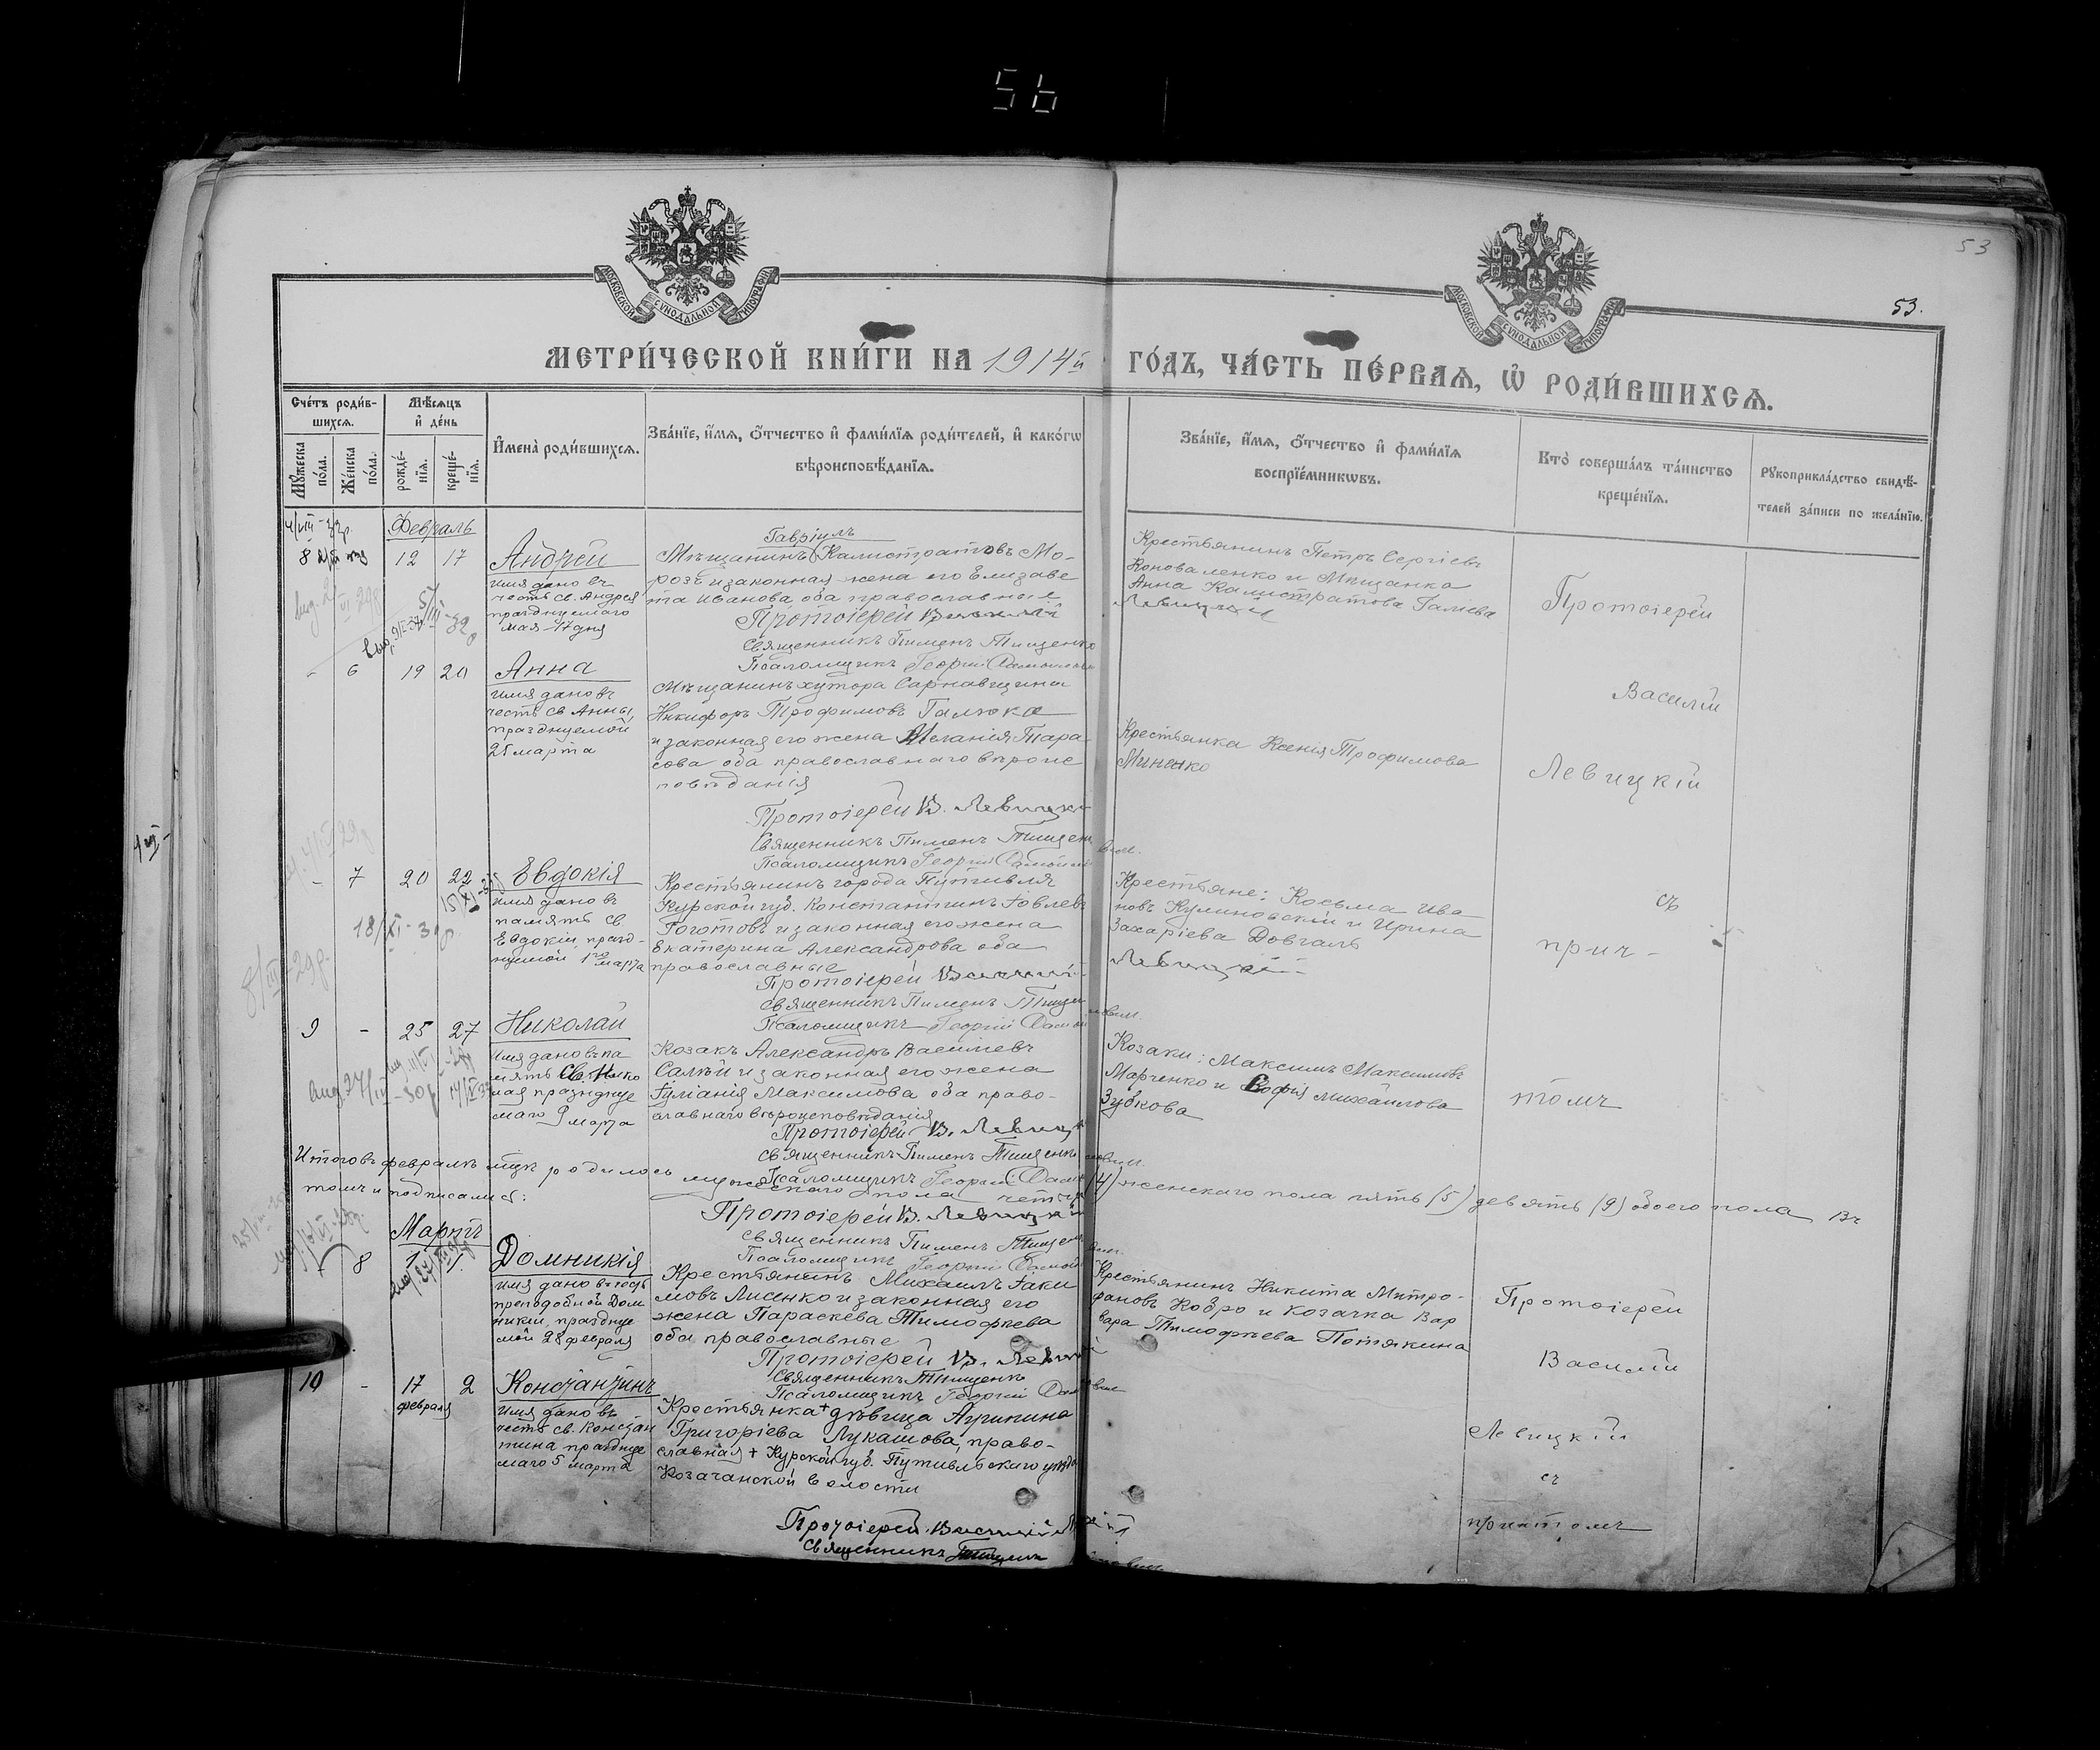 56
53
53.
МОСКОВСКОЙ СѴНОДАЛЬНОЙ ТИПОГРАФІИ
МОСКОВСКОЙ СѴНОДАЛЬНОЙ ТИПОГРАФІИ
МЕТРИ́ЧЕСКОЙ КНИ́ГИ НА 1914й ГО́ДЪ, ЧА́СТЬ ПЕ́РВАѦ, Ѡ҆ РОДИ́ВШИХСѦ.
Сче́тъ роди́в-
шихсѧ.
Мꙋ́жеска по́ла.
Же́нска по́ла.
Мѣ́сѧцъ
и҆ де́нь
рожде́-
нїѧ.
креще́-
нїѧ.
И҆мена̀ роди́вшихсѧ.
Зва́нїе, и҆́мѧ, ѻ҆́тчество и҆ фами́лїѧ роди́телей, и҆ како́гѡ
вѣроисповѣ́данїѧ.
Зва́нїе, и҆́мѧ, ѻ҆́тчество и҆ фами́лїѧ
воспрїе́мникѡвъ.
Кто̀ соверша́лъ та́инство
креще́нїѧ.
Рꙋкоприкла́дство свидѣ́-
телей за́писи по жела́нїю.
Февраль
8 12 17 Андрей
имя дано въ
честь св. Андрея
празднуемаго
мая 17 дня
Гавріилъ
Мѣщанинъ Калистратовъ Мо-
розъ и законная жена его Елизаве
та Иванова, оба православные
Протоіерей Василій Левицкій
Священникъ Пименъ Тищенко
Псаломщикъ Георгій
Крестьянинъ Петръ Сергіевъ
Коноваленко и Мѣщанка
Анна Калистратова Галіева
Протоіерей
- 6 19 20 Анна
имя дано въ
честь св Анны,
празднуемой
25 марта
Мѣщанинъ хутора Сарнавщины
Никифоръ Трофимовъ Галюка
и законная его жена Меланія Тара
сова оба православнаго вѣроис
повѣданія
Протоіерей В. Левицкій
Священникъ Пименъ Тищенко
Псаломщикъ Георгій
Крестьянка Ксенія Трофимова
Миненко
Василій
Левицкій
- 7 20 22 Евдокія
имя дано въ
память св
Евдокіи, празд-
нуемой 1го марта
Крестьянинъ города Путивля
Курской губ. Константинъ Іовлевъ
Гоготовъ и законная его жена
Екатерина Александрова оба
православные
Протоіерей Василій Левицкій
Священникъ Пименъ Тищенко
Псаломщикъ Георгій
Крестьяне: Косьма Ива
новъ Кулиновскій и Ирина
Захаріева Довгаль
съ
прич-
9 - 25 27 Николай
имя дано въ па
мять св. Нико
лая празднуе
маго 9 марта
Козакъ Александръ Васильевъ
Салѣй и законная его жена
Іуліанія Максимова оба право-
славнаго вѣроисповѣданія
Протоіерей В. Левицкій
Священникъ Пименъ Тищенко
Псаломщикъ Георгій
Козаки: Максимъ Максимовъ
Марченко и Софія Михайлова
Зубкова
томъ
Итого въ февралѣ мцѣ родилось мужескаго пола четыре (4) женскаго пола пять (5) девять (9) обоего пола Въ
томъ и подписались:
Протоіерей В. Левицкій
Священникъ Пименъ Тищенко
Псаломщикъ Георгій
Мартъ
8 1 1 Домникія
имя дано въ честь
преподобной Дом
никіи, празднуе
мой 28 февраля
Крестьянинъ Михаилъ Іаки
мовъ Лисенко и законная его
жена Параскева Тимофѣева
оба православные
Протоіерей В. Левицкій
Священникъ Тищенко
Псаломщикъ Георгій
Крестьянинъ Никита Митро-
фановъ Кодро и козачка Вар
вара Тимофѣева Потякина
Протоіерей
Василій
10 - 17 2 Константинъ
февраля
имя дано въ
честь св. Констан
тина празднуе
маго 5 марта
Крестьянка + дѣвица Агрипина
Григоріева Лукашова, право-
славная + Курской губ. Путивльскаго уѣзда
Козачанской волости
Протоіерей Василій
Священникъ Тищенко
Левицкій
съ
причтомъ